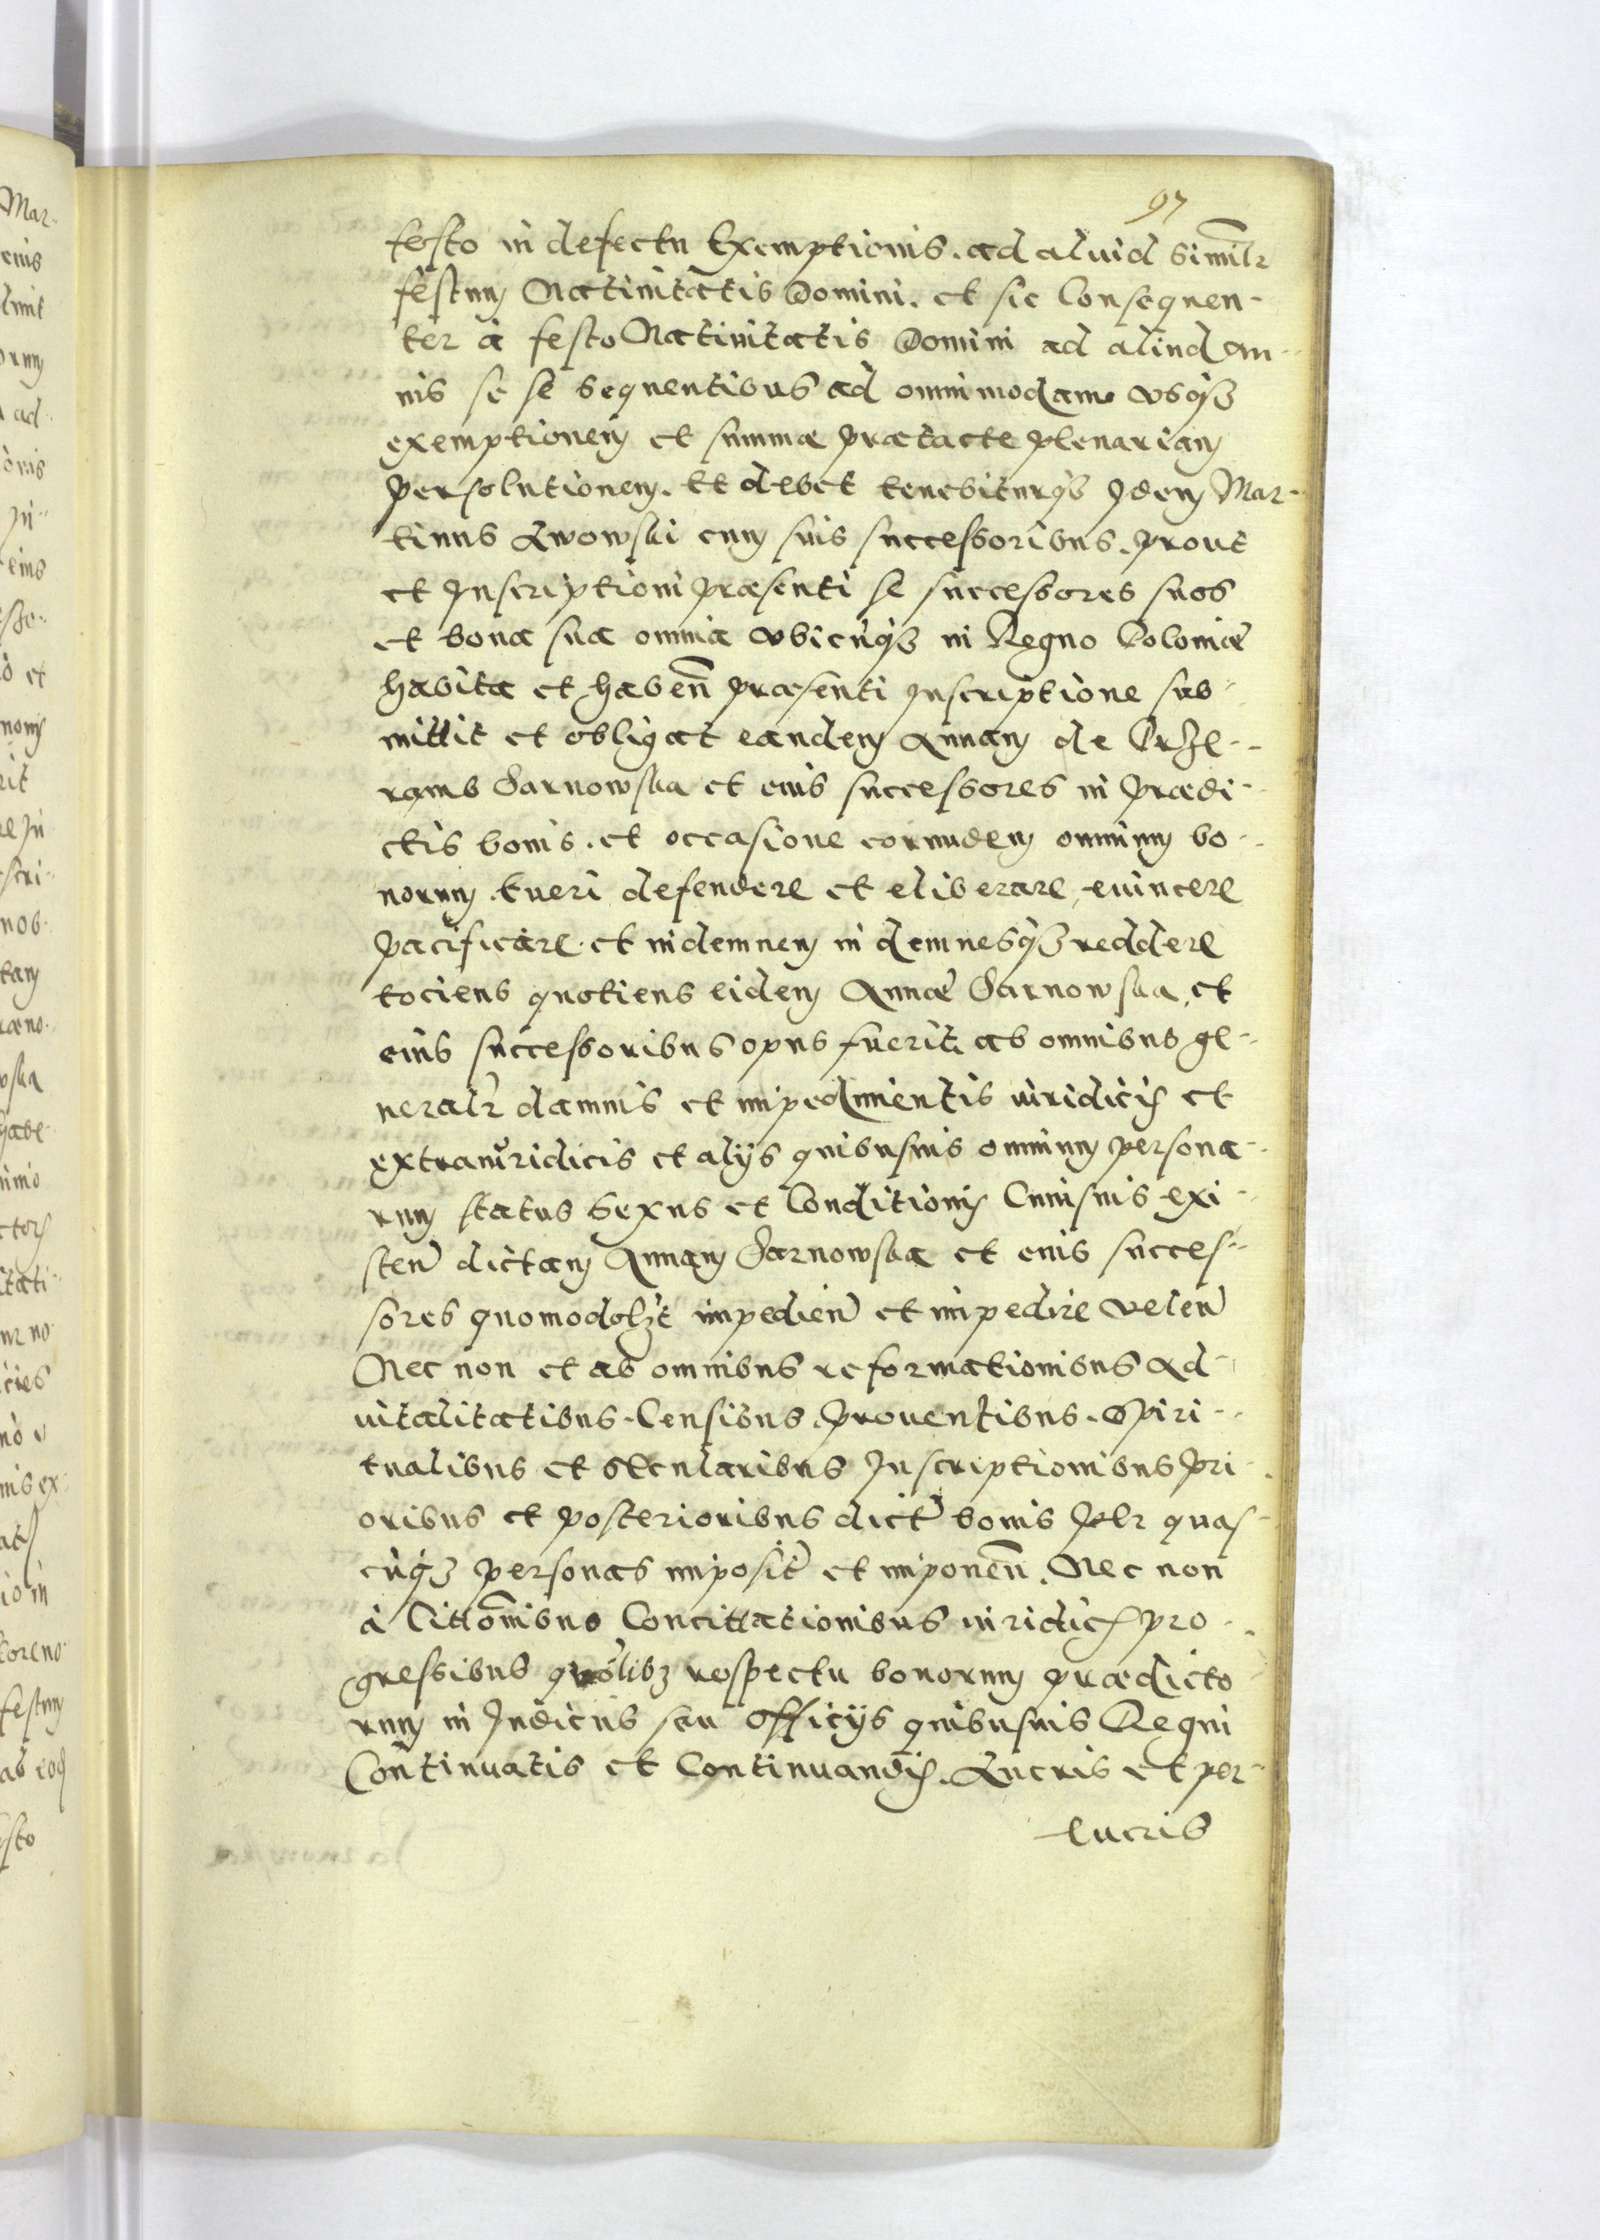 97
festo in defectu Exemptionis. ad aliud Similr
festum Natiuitatis Domini. et sic Consequen-
ter à festo Natiuitatis Domini ad aliud an-
nis se se sequentibus ad omnimodam vsq3
exemptionem et summæ prætacte plenariam
persolutionem. Et debet tenebiturq3 Idem Mar-
tinus Lwowski cum suis successoribus. prout
et Inscriptioni præsenti se successores suos
et bona sua omnia vbicuq3 in Regno Poloniæ
habita et haben præsenti Inscriptione sub-
mittit et obligat eandem Annam de
Sarnowska et eius successores in prædi-
ctis bonis. et occasione eorundem omnium bo-
norum. tueri defendere et eliberare, euincere
pacificare. et indemnem indemnesq3 reddere
tociens quotiens eidem Annæ Sarnowska, et
eius successoribus opus fuerit ab omnibus ge-
neralr damnis et impedimentis iuridicis et
extraiuridicis et alijs quibusuis omnium persona-
rum status Sexus et Conditionis Cuiusuis exi-
sten dictam Annam Sarnowska et eius succes-
sores quomodolzt impedien et impedire volen
Nec non et ab omnibus reformationibus Ad-
uitalitatibus. Censibus. prouentibus. Spiri-
tualibus et Secularibus Inscriptionibus pri-
oribus et posterioribus dict bonis per quas-
cuq3 personas imposit et imponen. Nec non
à Cittonibus Concittationibus iuridicis pro-
gressibus quolib3 respectu bonorum prædicto-
rum in Iudicijs seu Officijs quibusuis Regni
Continuatis et Continuandis. Lucris et per-
lucris